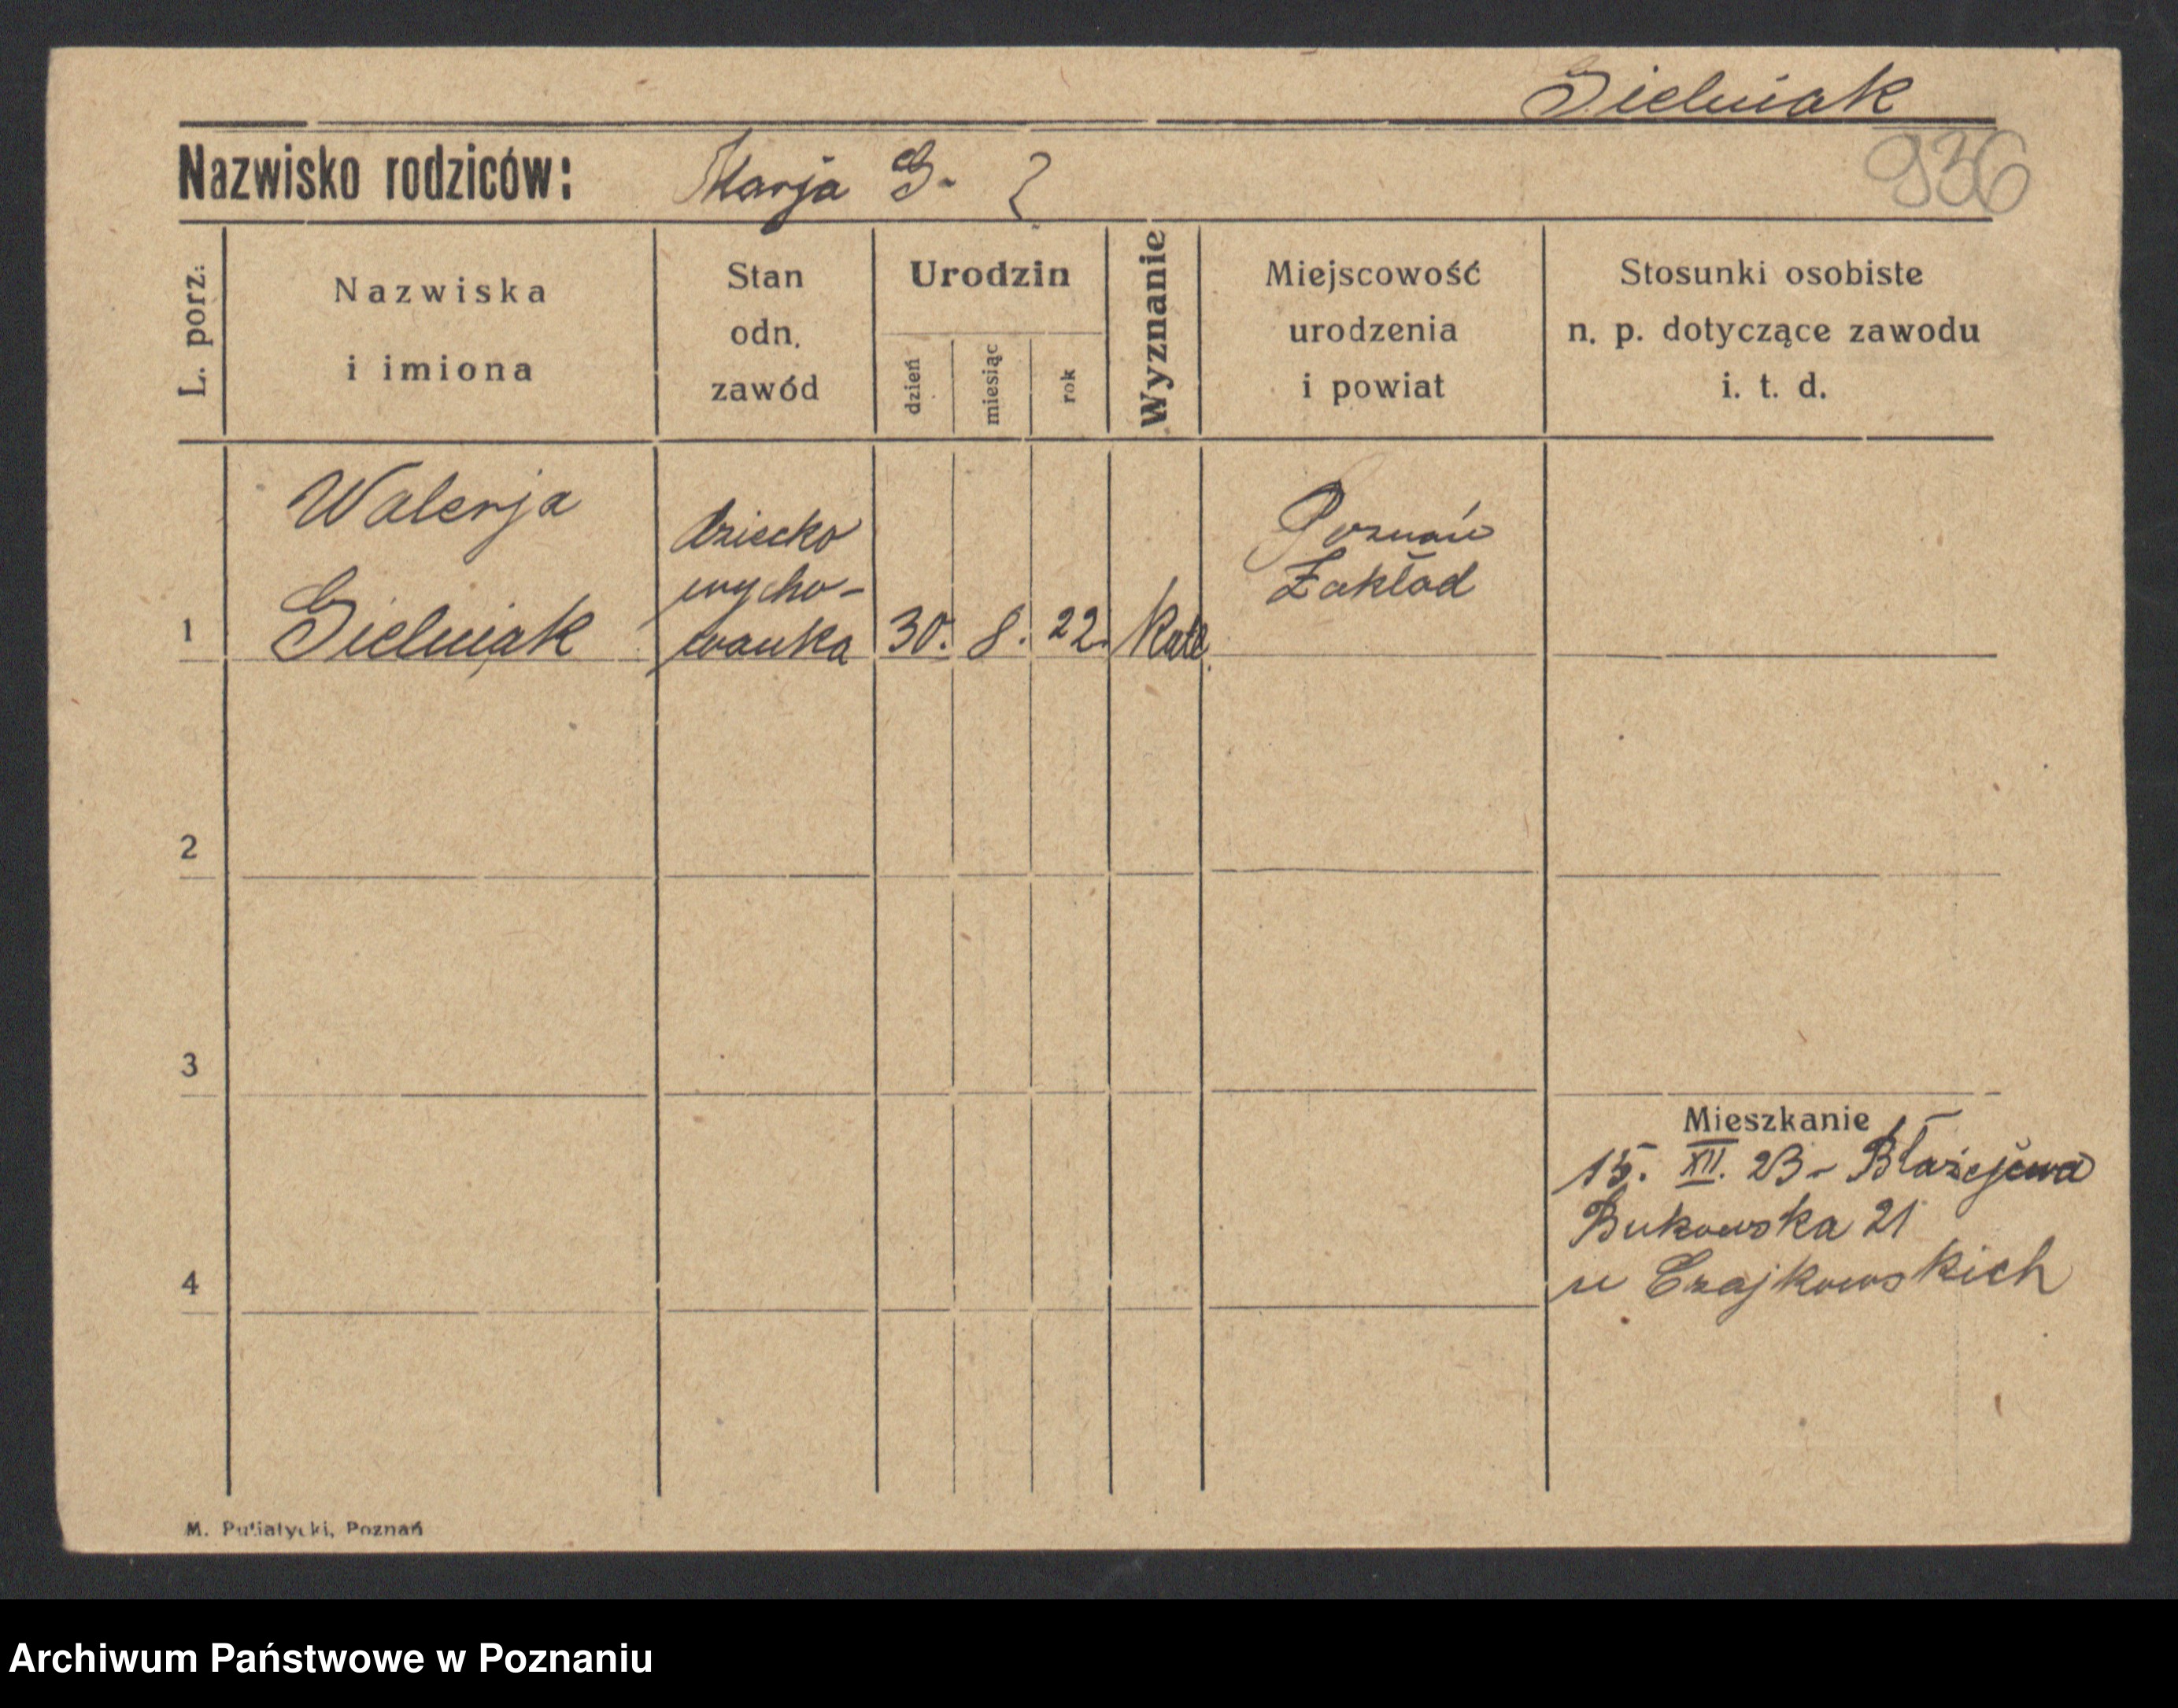 Gielniak
Nazwisko rodziców: Marja G. ?
936
L. porz. Nazwiska i imiona
Stan odn. zawód
Urodzin
dzień miesiąc rok
Wyznanie
Miejscowość urodzenia i powiat
Stosunki osobiste n. p. dotyczące zawodu i. t. d.
Walerja
Gielniak
dziecko
wycho-
wanka
1 30. 8. 22. Katl.
Poznań
Zakład
2
3
4
Mieszkanie
15. XII. 23 - Błażejewo
Bukowska 21
u Czajkowskich
M. Putiatycki, Poznań
Archiwum Państwowe w Poznaniu